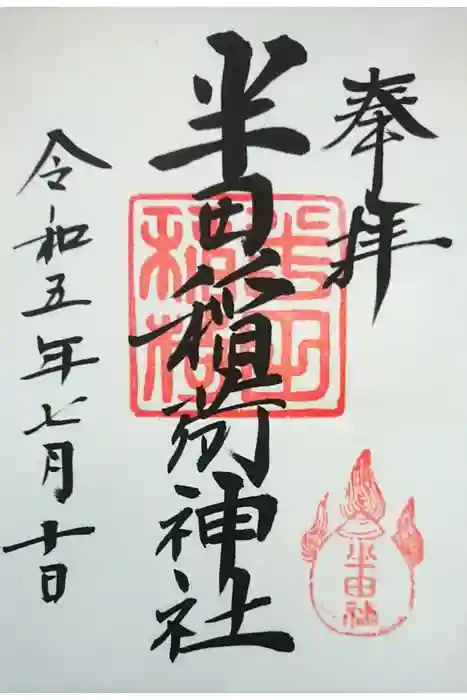 奉拝
半田稲荷神社
半田稲荷
半田社
令和五年七月十日